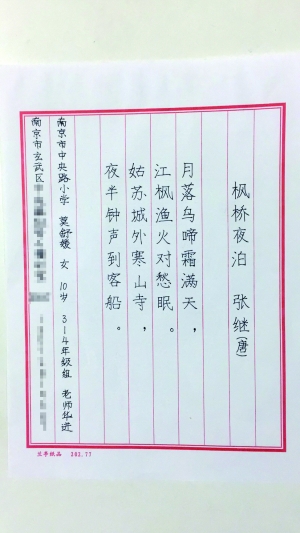 枫桥夜泊 张继(唐)
月落乌啼霜满天，
江枫渔火对愁眠。
姑苏城外寒山寺，
夜半钟声到客船。
南京市中央路小学 莫舒媛 女 10岁 3-4年级组 老师华进
南京市玄武区
兰亭纸品 302.77